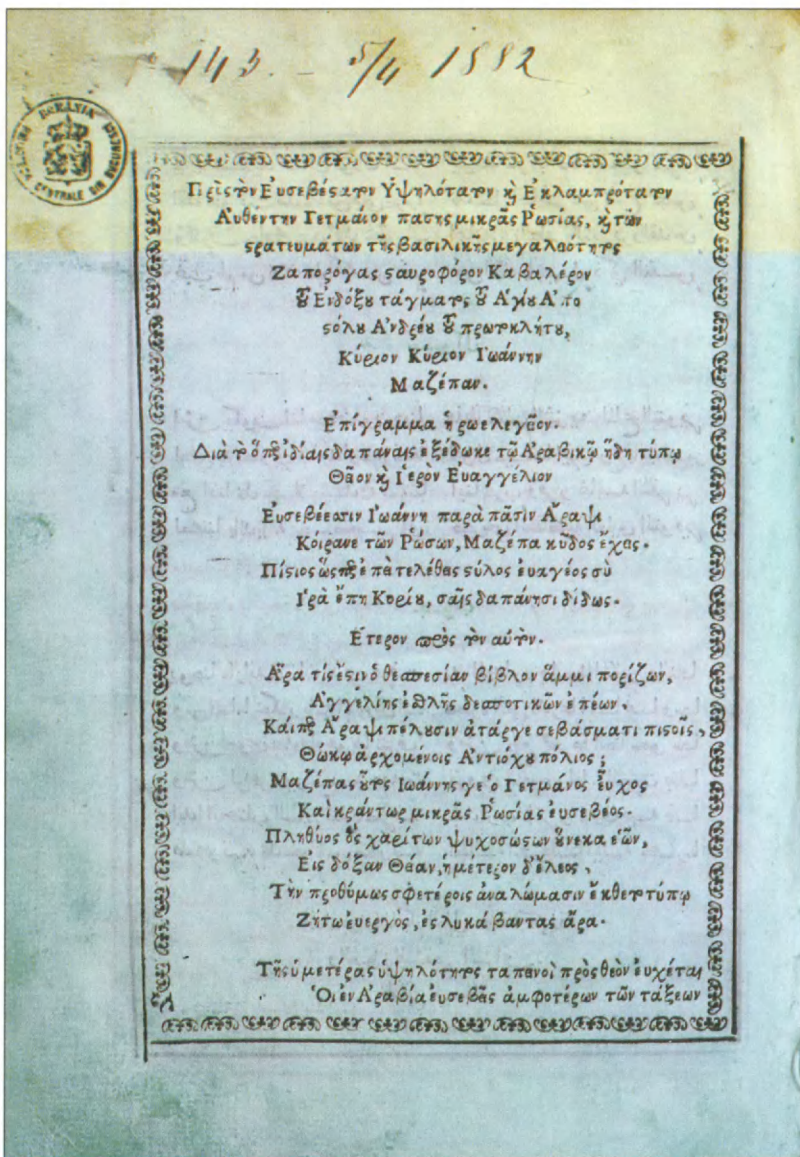 143. – 5/4 1882
ROMANIA
CENTRALE DIN BUCURESCI
Πρὸς τὸν Εὐσεβέςατον Ὑψηλότατον κ̀ Ἐκλαμπρότατον
Αὐθέντην Γετμάνον πασης μικρᾶς Ῥωσίας, κ̀ τῶν
ςρατευμάτων τῆς βασιλικῆς μεγαλειότητος
Ζαπορόγας ςαυροφόρον Καβαλέρον
τȣ͂ Ενδόξȣ τάγματος τȣ͂ Αγίȣ Απο
ςόλȣ Ανδρέȣ τȣ͂ πρωτοκλήτȣ,
Κύριον Κύριον Ιωάννην
Μαζέπαν.
Επίγραμμα ἡρωελεγεῖον.
Διὰ τὸ ὅτι ἰδίαις δαπάναις ἐξέδωκε τῷ Αραβικῷ ἤδη τύπῳ
Θεῖον κ̀ Ιερὸν Ευαγγέλιον
Ευσεβέεσσιν Ιωάννη παρὰ πᾶσιν Αραψι
Κόιρανε τῶν Ρώσων, Μαζέπα κῦδος ἔχεις.
Πίςιος ὥς ἐπειτελέθεις ςύλος ἐυαγέος σὺ
Ιρὰ ἔπη Κυρίȣ, σαῖς δαπάνησι δίδως.
Ετερον πρὸς τὸν αὐτὸν.
Αρα τίς ἐςιν ὁ θεσπεσίαν βίβλον ἄμμι πορίζων,
Αγγελίης ἐσθλῆς δεσποτικῶν ἐπέων,
Αραψι πέλουσιν ἀτάργε σεβάσματι πιςοῖς,
Θώκῳ ἀρχομένοις Αντιόχȣ πόλιος;
Μαζέπας ȣ͂τος Ιωάννης γε ὁ Γετμάνος ἔυχος
Καὶ κράντωρ μικρᾶς Ρωσίας ἐυσεβέος.
Πληθύος ὃς χαρίτων ψυχοσώςων ȣ͂νεκα ἑῶν,
Εις δόξαν Θείαν, ἡμέτερον δ' ἔλεος,
Τὴν προθύμως σφετέροις ἀναλώμασιν ἔκθετο τύπῳ
Ζήτω ἐυεργὸς, ἐς λυκάβαντας ἄρα.
Τῆς ὑμετέρας ὑψηλότητος ταπεινοὶ πρὸς θεὸν ἐυχέται
Οἱ ἐν Αραβίᾳ ἐυσεβεῖς ἀμφοτέρων τῶν τάξεων